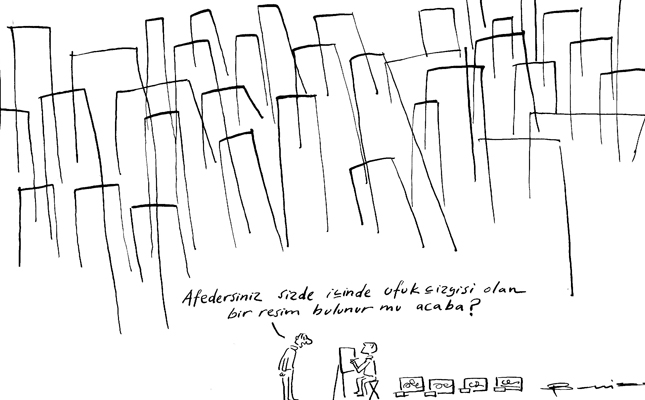 Afedersiniz sizde içinde ufuk çizgisi olan
bir resim bulunur mu acaba?